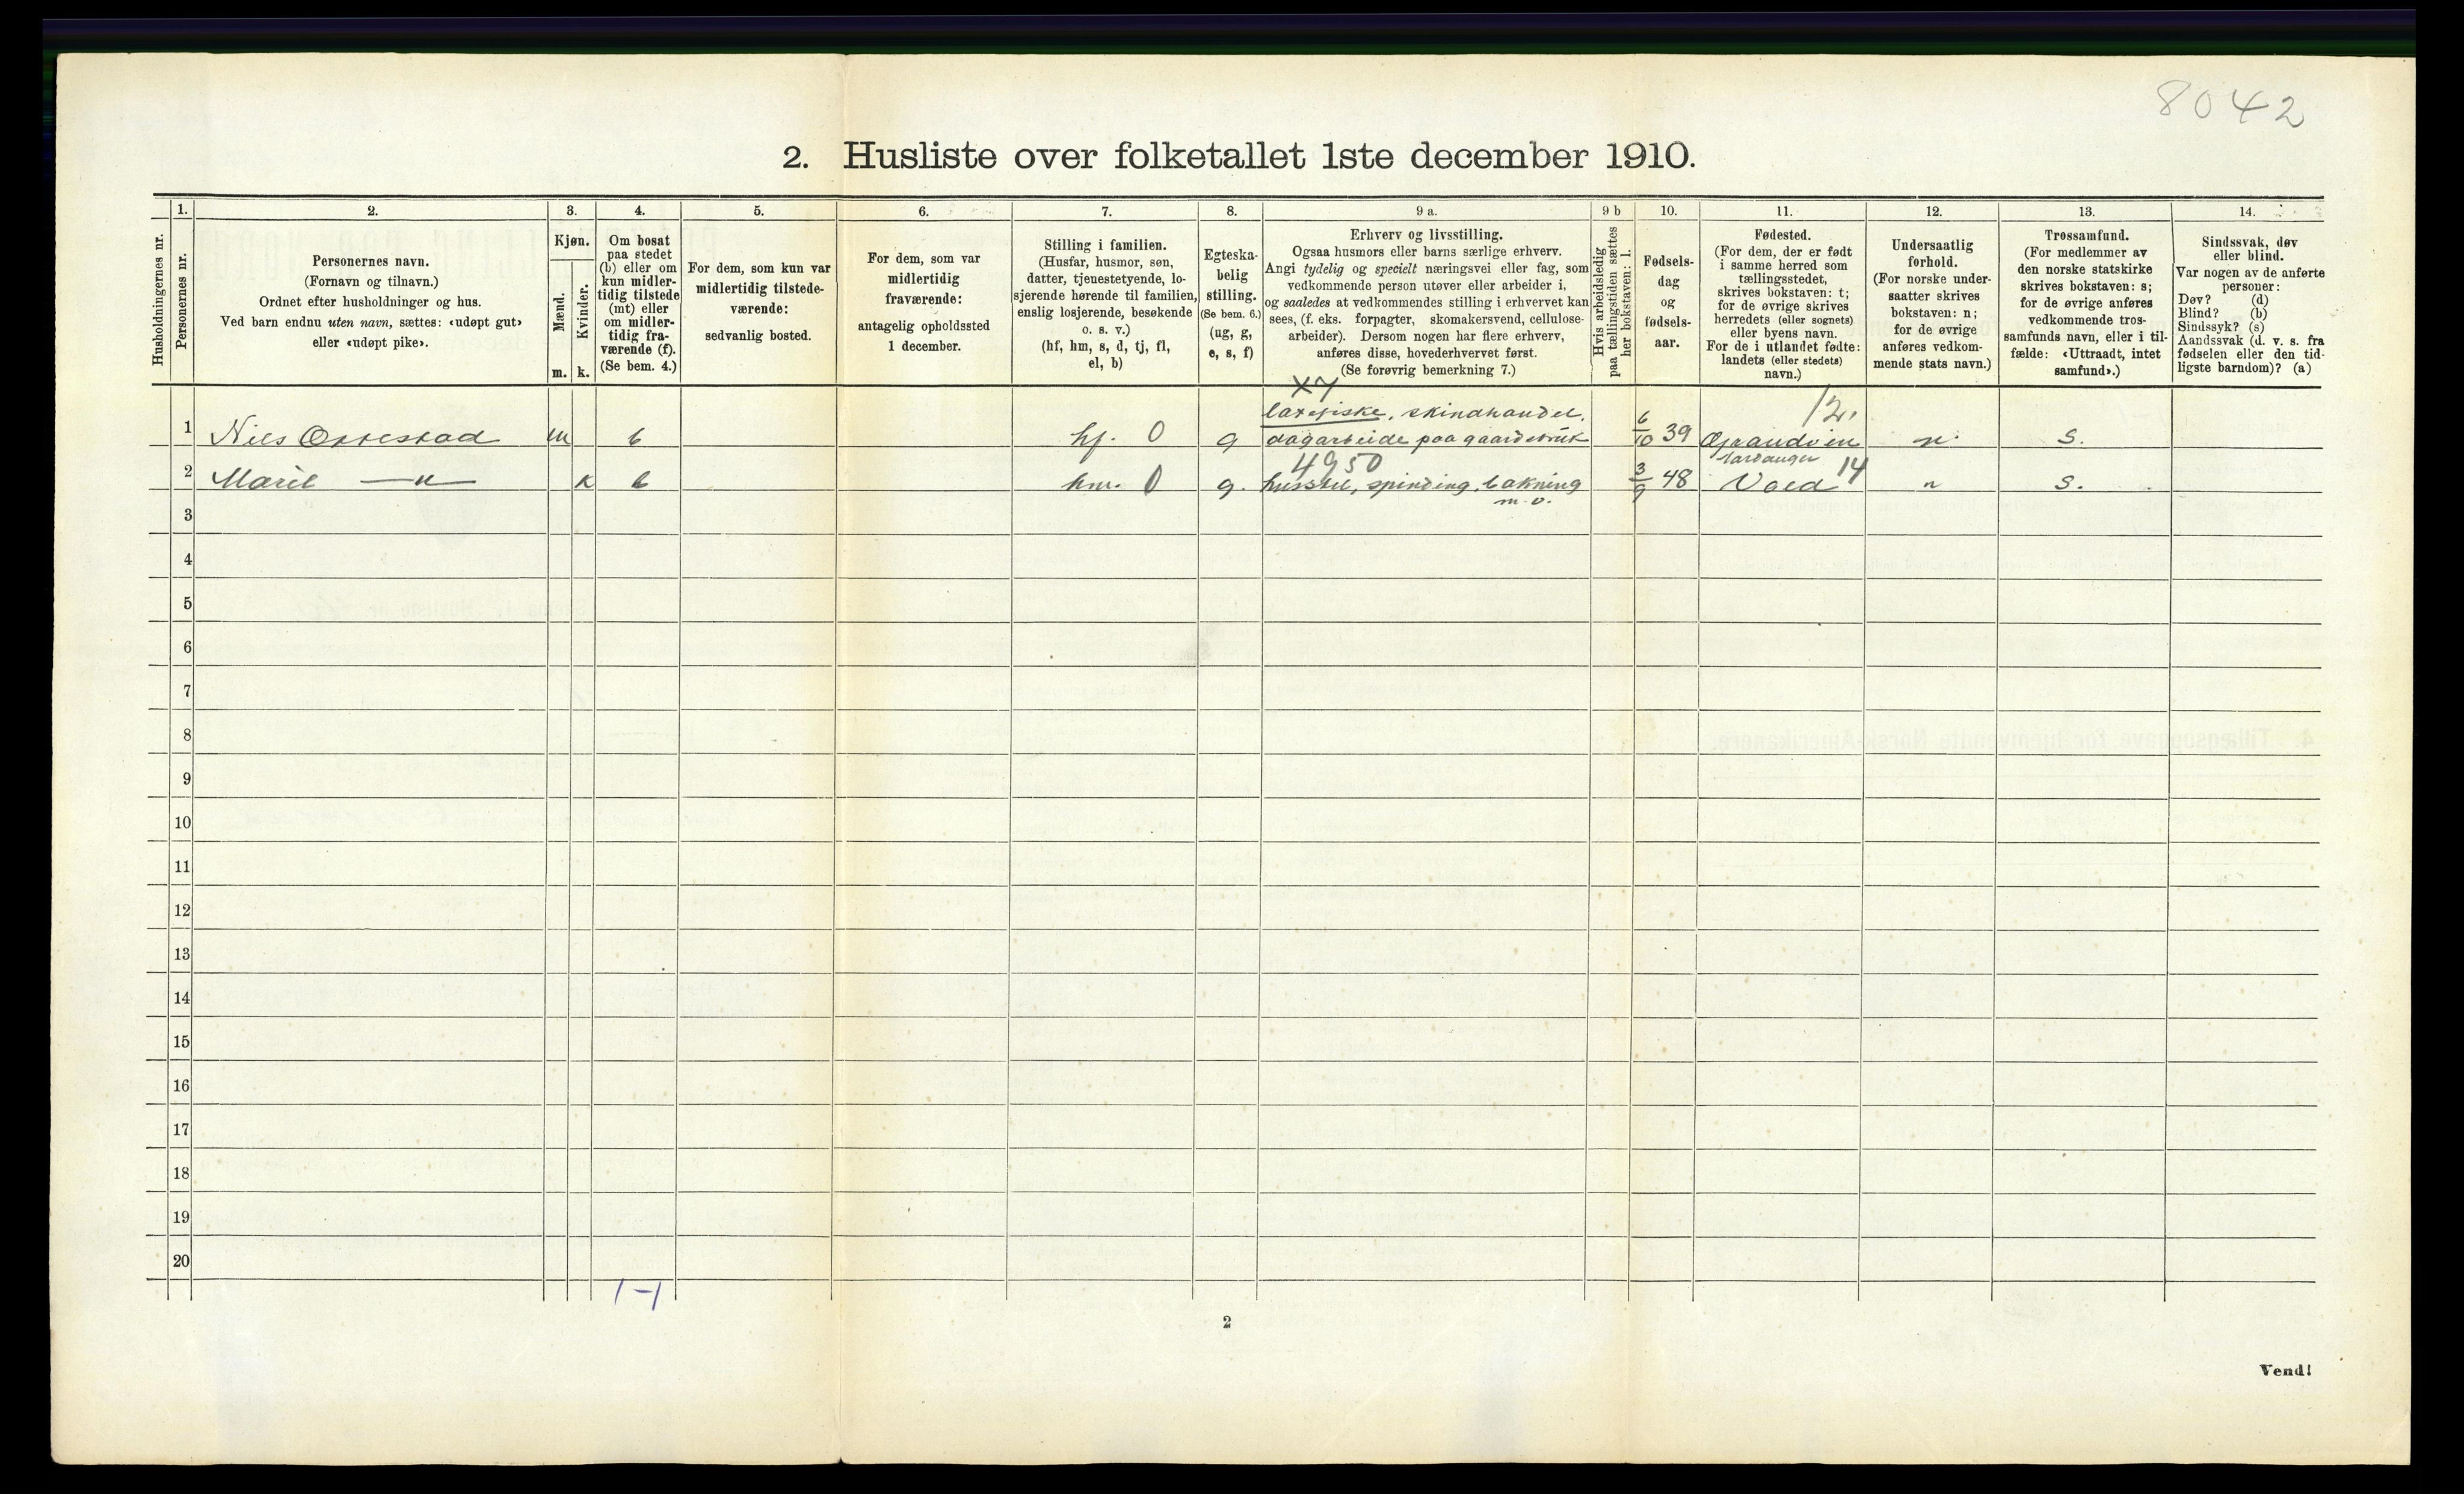 8042
2. Husliste over folketallet 1ste december 1910.
Husholdningernes nr.
1.
Personernes nr.
2.
Personernes navn.
(Fornavn og tilnavn.)
Ordnet efter husholdninger og hus.
Ved barn endnu uten navn, sættes: «udøpt gut»
eller «udøpt pike».
3.
Kjøn.
Mænd.
Kvinder.
m. k.
4.
Om bosat
paa stedet
(b) eller om
kun midler-
tidig tilstede
(mt) eller
om midler-
tidig fra-
værende (f).
(Se bem. 4.)
5.
For dem, som kun var
midlertidig tilstede-
værende:
sedvanlig bosted.
6.
For dem, som var
midlertidig
fraværende:
antagelig opholdssted
1 december.
7.
Stilling i familien.
(Husfar, husmor, søn,
datter, tjenestetyende, lo-
sjerende hørende til familien,
enslig losjerende, besøkende
o. s. v.)
(hf, hm, s, d, tj, fl,
el, b)
8.
Egteska-
belig
stilling.
(Se bem. 6.)
(ug, g,
e, s, f)
9 a.
Erhverv og livsstilling.
Ogsaa husmors eller barns særlige erhverv.
Angi tydelig og specielt næringsvei eller fag, som
vedkommende person utøver eller arbeider i,
og saaledes at vedkommendes stilling i erhvervet kan
sees, (f. eks. forpagter, skomakersvend, cellulose-
arbeider). Dersom nogen har flere erhverv,
anføres disse, hovederhvervet først.
(Se forøvrig bemerkning 7.)
9 b
Hvis arbeidsledig
paa tællingstiden sættes
her bokstaven: l.
10.
Fødsels-
dag
og
fødsels-
aar.
11.
Fødested.
(For dem, der er født
i samme herred som
tællingsstedet,
skrives bokstaven: t;
for de øvrige skrives
herredets (eller sognets)
eller byens navn.
For de i utlandet fødte:
landets (eller stedets)
navn.)
12.
Undersaatlig
forhold.
(For norske under-
saatter skrives
bokstaven: n;
for de øvrige
anføres vedkom-
mende stats navn.)
13.
Trossamfund.
(For medlemmer av
den norske statskirke
skrives bokstaven: s;
for de øvrige anføres
vedkommende tros-
samfunds navn, eller i til-
fælde: «Uttraadt, intet
samfund».)
14.
Sindssvak, døv
eller blind.
Var nogen av de anførte
personer:
Døv? (d)
Blind? (b)
Sindssyk? (s)
Aandssvak (d. v. s. fra
fødselen eller den tid-
ligste barndom)? (a)
X7
laxefiske, skindhandel, 12.
1 Nils m b hf. 0 g dagarbeide paa gaardsbruk 6/10 39 n. s.
4950 Hardanger 14
2 Marit —"— k b hm. 0 g. husstel, spinding, bakning 3/9 48 n s.
m. v.
3
4
5
6
7
8
9
10
11
12
13
14
15
16
17
18
19
20
1-1
2
Vend!